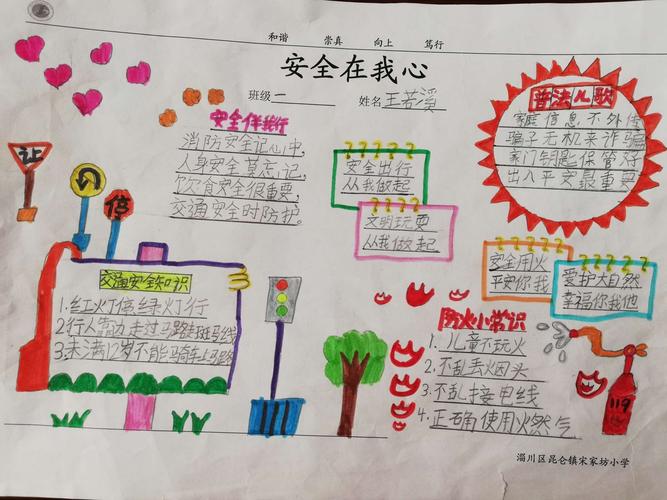 和谐 崇真 向上 笃行
安全在我心
班级 一 姓名 王若溪
安全伴我行
消防安全记心中,
人身安全莫忘记,
饮食安全很重要,
交通安全时防护。
普法儿歌
家庭信息不外传
骗子无机来诈骗
家门钥匙保管好
出入平安最重要
安全出行
从我做起
文明玩耍
从我做起
安全用火
平安你我
爱护大自然
幸福你我他
让
停
交通安全知识
1.红灯停绿灯行
2.行人靠边走过马路走斑马线
3.未满12岁不能骑车上马路
防火小常识
1.儿童不玩火
2.不乱丢烟头
3.不乱接电线
4.正确使用燃气
119
淄川区昆仑镇宋家坊小学